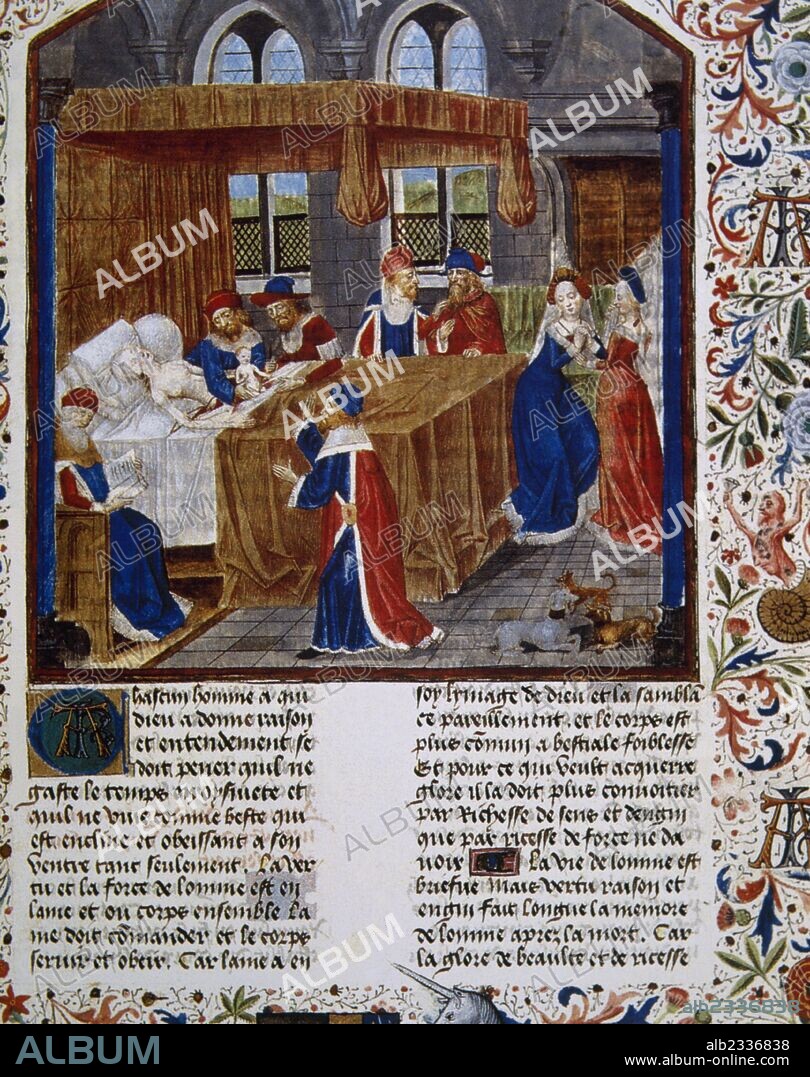 Chascun homme a qui
dieu a donne raison
et entendement se
doit pener quil ne
gaste le temps en oysiuete et
quil ne viue comme beste qui
est encline et obeissant a son
ventre tant seulement. La ver
tu et la force de lomme est en
lame et ou corps ensemble La
me doit cōmander et le corps
seruir et obeir. Car lame a en
soy lymage de dieu et la sambla
ce pareillement. et le corps est
plus cōmun a bestiale foiblesse
Et pour ce qui veult acquerre
glore il la doit plus conuoitier
par Richesse de sens et dengin
que par ricesse de force ne da
uoir La vie de lomme est
briefue mais vertu raison et
engin fait longue la memore
de lomme aprez la mort. Car
la glore de beaulte et de ricesse
alb2336838
ALBUM
alb2336838
www.album-online.com